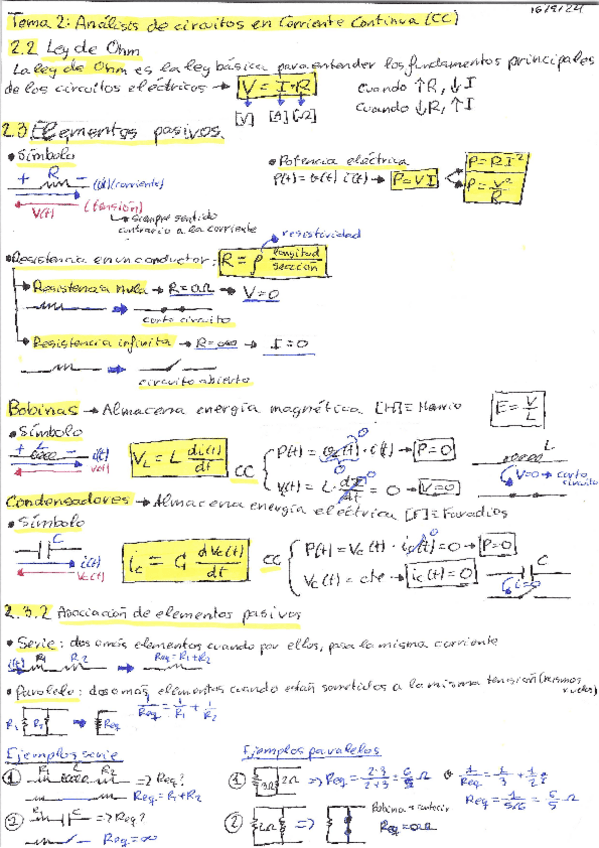 16/9/24
Tema 2: Análisis de circuitos en Corriente Continua (CC)
2.2 Ley de Ohm
La ley de Ohm es la ley básica para entender los fundamentos principales
de los circuitos eléctricos → V = I·R
[V] [A] [Ω]
Cuando ↑R, ↓I
Cuando ↓R, ↑I
2.3 Elementos pasivos
• Símbolo
+ R - i(t) (corriente)
V(t) (tensión)
↳ siempre sentido
contrario a la corriente
• Potencia eléctrica
P(t) = v(t) i(t) → P=VI
P=RI²
P=V²/R
• Resistencia en un conductor: R = ρ longitud/sección
resistividad
→ Resistencia nula → R=0Ω → V=0
corto circuito
→ Resistencia infinita → R=∞ → I=0
circuito abierto
Bobinas → Almacena energía magnética [H]= Henrio
E = V/L
• Símbolo
+ L - i(t)
v(t)
V_L = L di(t)/dt
CC
P(t) = v(t)·i(t) → P=0
V(t) = L·di/dt = 0 → V=0
L
V=0 → corto
circuito
Condensadores → Almacena energía eléctrica [F]=Faradios
• Símbolo
C
i(t)
Vc(t)
ic = C dVc(t)/dt
CC
P(t) = Vc(t)·ic(t)=0 → P=0
Vc(t) = cte → ic(t)=0
C
i=0
2.3.2 Asociación de elementos pasivos
• Serie: dos o más elementos cuando por ellos, pasa la misma corriente
i(t) R1 R2 → Req=R1+R2
• Paralelo: dos o más elementos cuando están sometidos a la misma tensión (mismos
nudos)
R1 R2 → Req
1/Req = 1/R1 + 1/R2
Ejemplos serie
① R1 L R2 => Req?
Req=R1+R2
② R1 C => Req?
Req=∞
Ejemplos paralelos
① 3Ω 2Ω => Req = 2·3/2+3 = 6/5 Ω o 1/Req = 1/3 + 1/2
Req = 1/5/6 = 6/5 Ω
② 2Ω =>
Req=0Ω